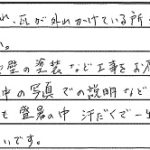 れ、瓦が外れかけている所
い。
壁の塗装など工事をお
中の写真での説明など
も盛暑の中 汗だくで一生
いです。